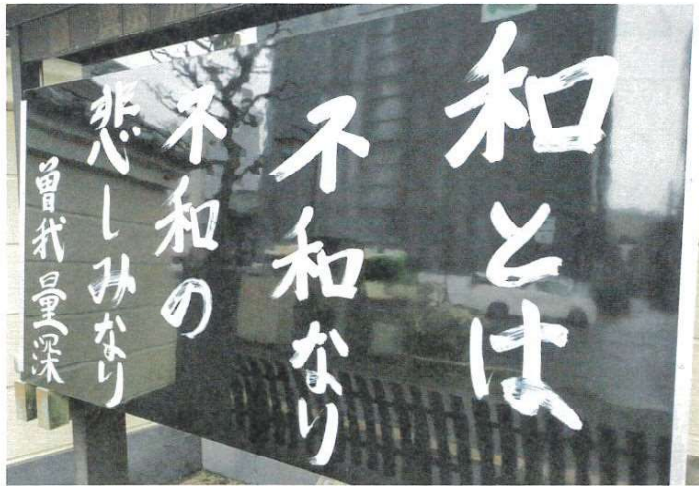 和とは
不和なり
不和の
悲しみなり
曽我量深